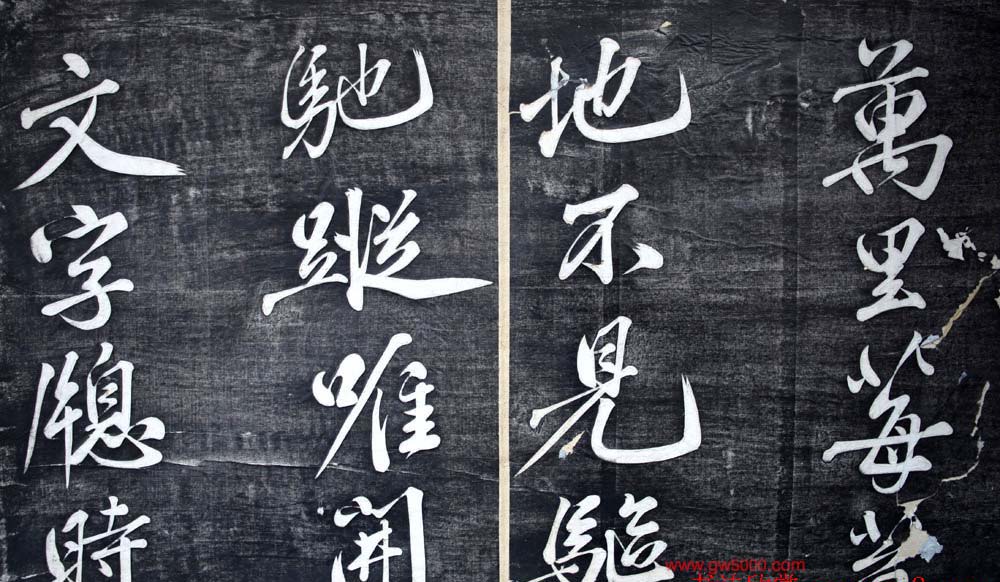 萬里莓
地不見驅
馳蹤唯開
文字牕時
www.gw5000.com